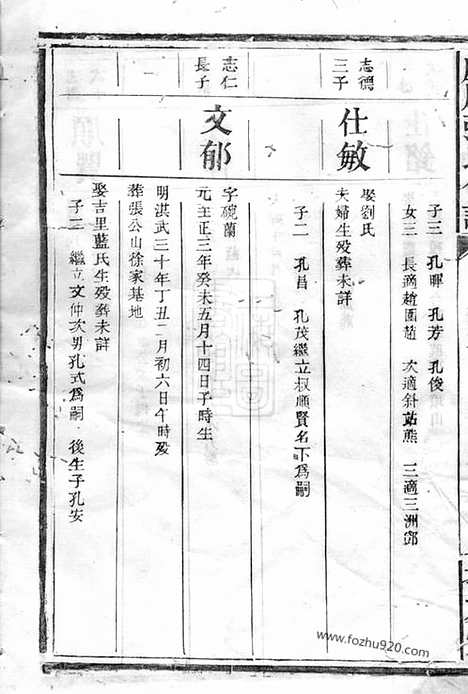 子三 孔暉 孔芳 孔俊
女三 長適趙園趙 次適針站熊 三適三洲鄧
志德
三子
仕敏
娶劉氏
夫婦生歿葬未詳
子二 孔昌 孔茂繼立叔順賢名下爲嗣
志仁
長子
文郁
字硯蘭
元至正三年癸未五月十四日子時生
明洪武三十年丁丑二月初六日午時歿
葬張公山徐家基地
娶吉里藍氏生歿葬未詳
子二 繼立文仲次男孔式爲嗣 後生子孔安
www.fozhu920.com